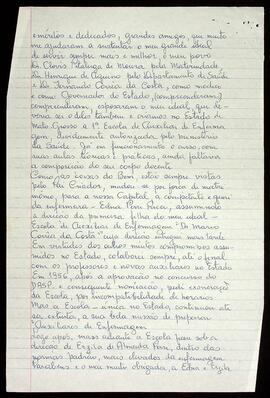 emóritos e dedicados, grandes amigos, que muito
me ajudaram a sustentar o meu grande ideal
de servir sempre mais e melhor, o meu povo
Dr. Clovis Pitaluga de Moura, pela Maternidade
Dr. Henrique de Aquino pelo Departamento de Saúde
e Dr. Fernando Corrêa da Costa, como médico
e como Governador do Estado, (compreenderam)
compreenderam, esposaram o meu ideal, que de-
veria ser o deles também e criamos no Estado de
Mato Grosso a 1ª Escola de Auxiliar de Enfermagem,
devidamente autorizada pelo ministério
da Saúde. Já em funcionamento o curso, com
suas aulas teóricas e práticas, ainda faltava
a composição do seu corpo docente
Como as coisas do Bem, estão sempre vistas
pelo Pai Criador, mudou-se por força de matri-
mônio, para a nossa Capital, a competente e queri-
da enfermeira - Edna Perri Ricci, assumindo
a direção da primeira filha do meu ideal -
Escola de Auxiliares de Enfermagem "Dr Mario
Corrêa da Costa" cuja direção integrei mais tarde
Em virtudes dos altos muitos compromissos assu-
midos no Estado, colaborei sempre, até o final
com os professores e novos auxiliares no Estado
Em 1956, após a aprovação no concurso do
DASP. e consequente nomeação, pedi exoneração
da Escola, por incompatibilidade de horários
Mas a Escola - única no Estado, continuou até
ser extinta, a sua bela missão de preparar
"Auxiliares de Enfermagem
Hoje após, mais adiante a Escola para sob a
direção de Ezzila di Almeida Perri, dentro das
normas padrão, mais elevadas da enfermagem
Parabens e o meu muito obrigada, a Edna e Ezzila